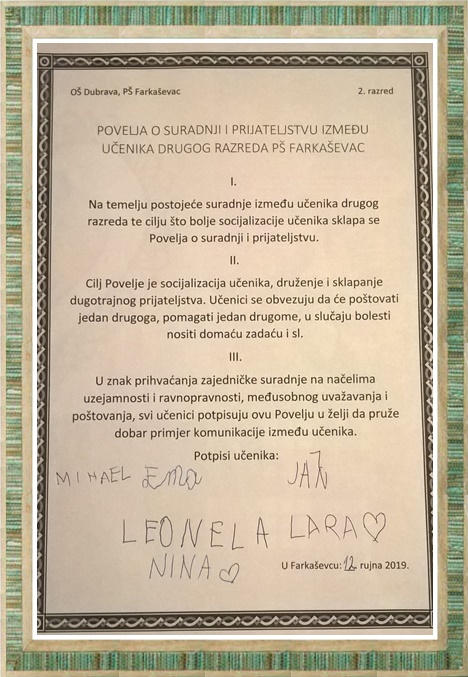 OŠ Dubrava, PŠ Farkaševac 2. razred
POVELJA O SURADNJI I PRIJATELJSTVU IZMEĐU
UČENIKA DRUGOG RAZREDA PŠ FARKAŠEVAC
I.
Na temelju postojeće suradnje između učenika drugog
razreda te cilju što bolje socijalizacije učenika sklapa se
Povelja o suradnji i prijateljstvu.
II.
Cilj Povelje je socijalizacija učenika, druženje i sklapanje
dugotrajnog prijateljstva. Učenici se obvezuju da će poštovati
jedan drugoga, pomagati jedan drugome, u slučaju bolesti
nositi domaću zadaću i sl.
III.
U znak prihvaćanja zajedničke suradnje na načelima
uzejamnosti i ravnopravnosti, međusobnog uvažavanja i
poštovanja, svi učenici potpisuju ovu Povelju u želji da pruže
dobar primjer komunikacije između učenika.
Potpisi učenika:
MIHAEL Ema JAN
LEONELA LARA♡
NINA♡
U Farkaševcu: 12. rujna 2019.